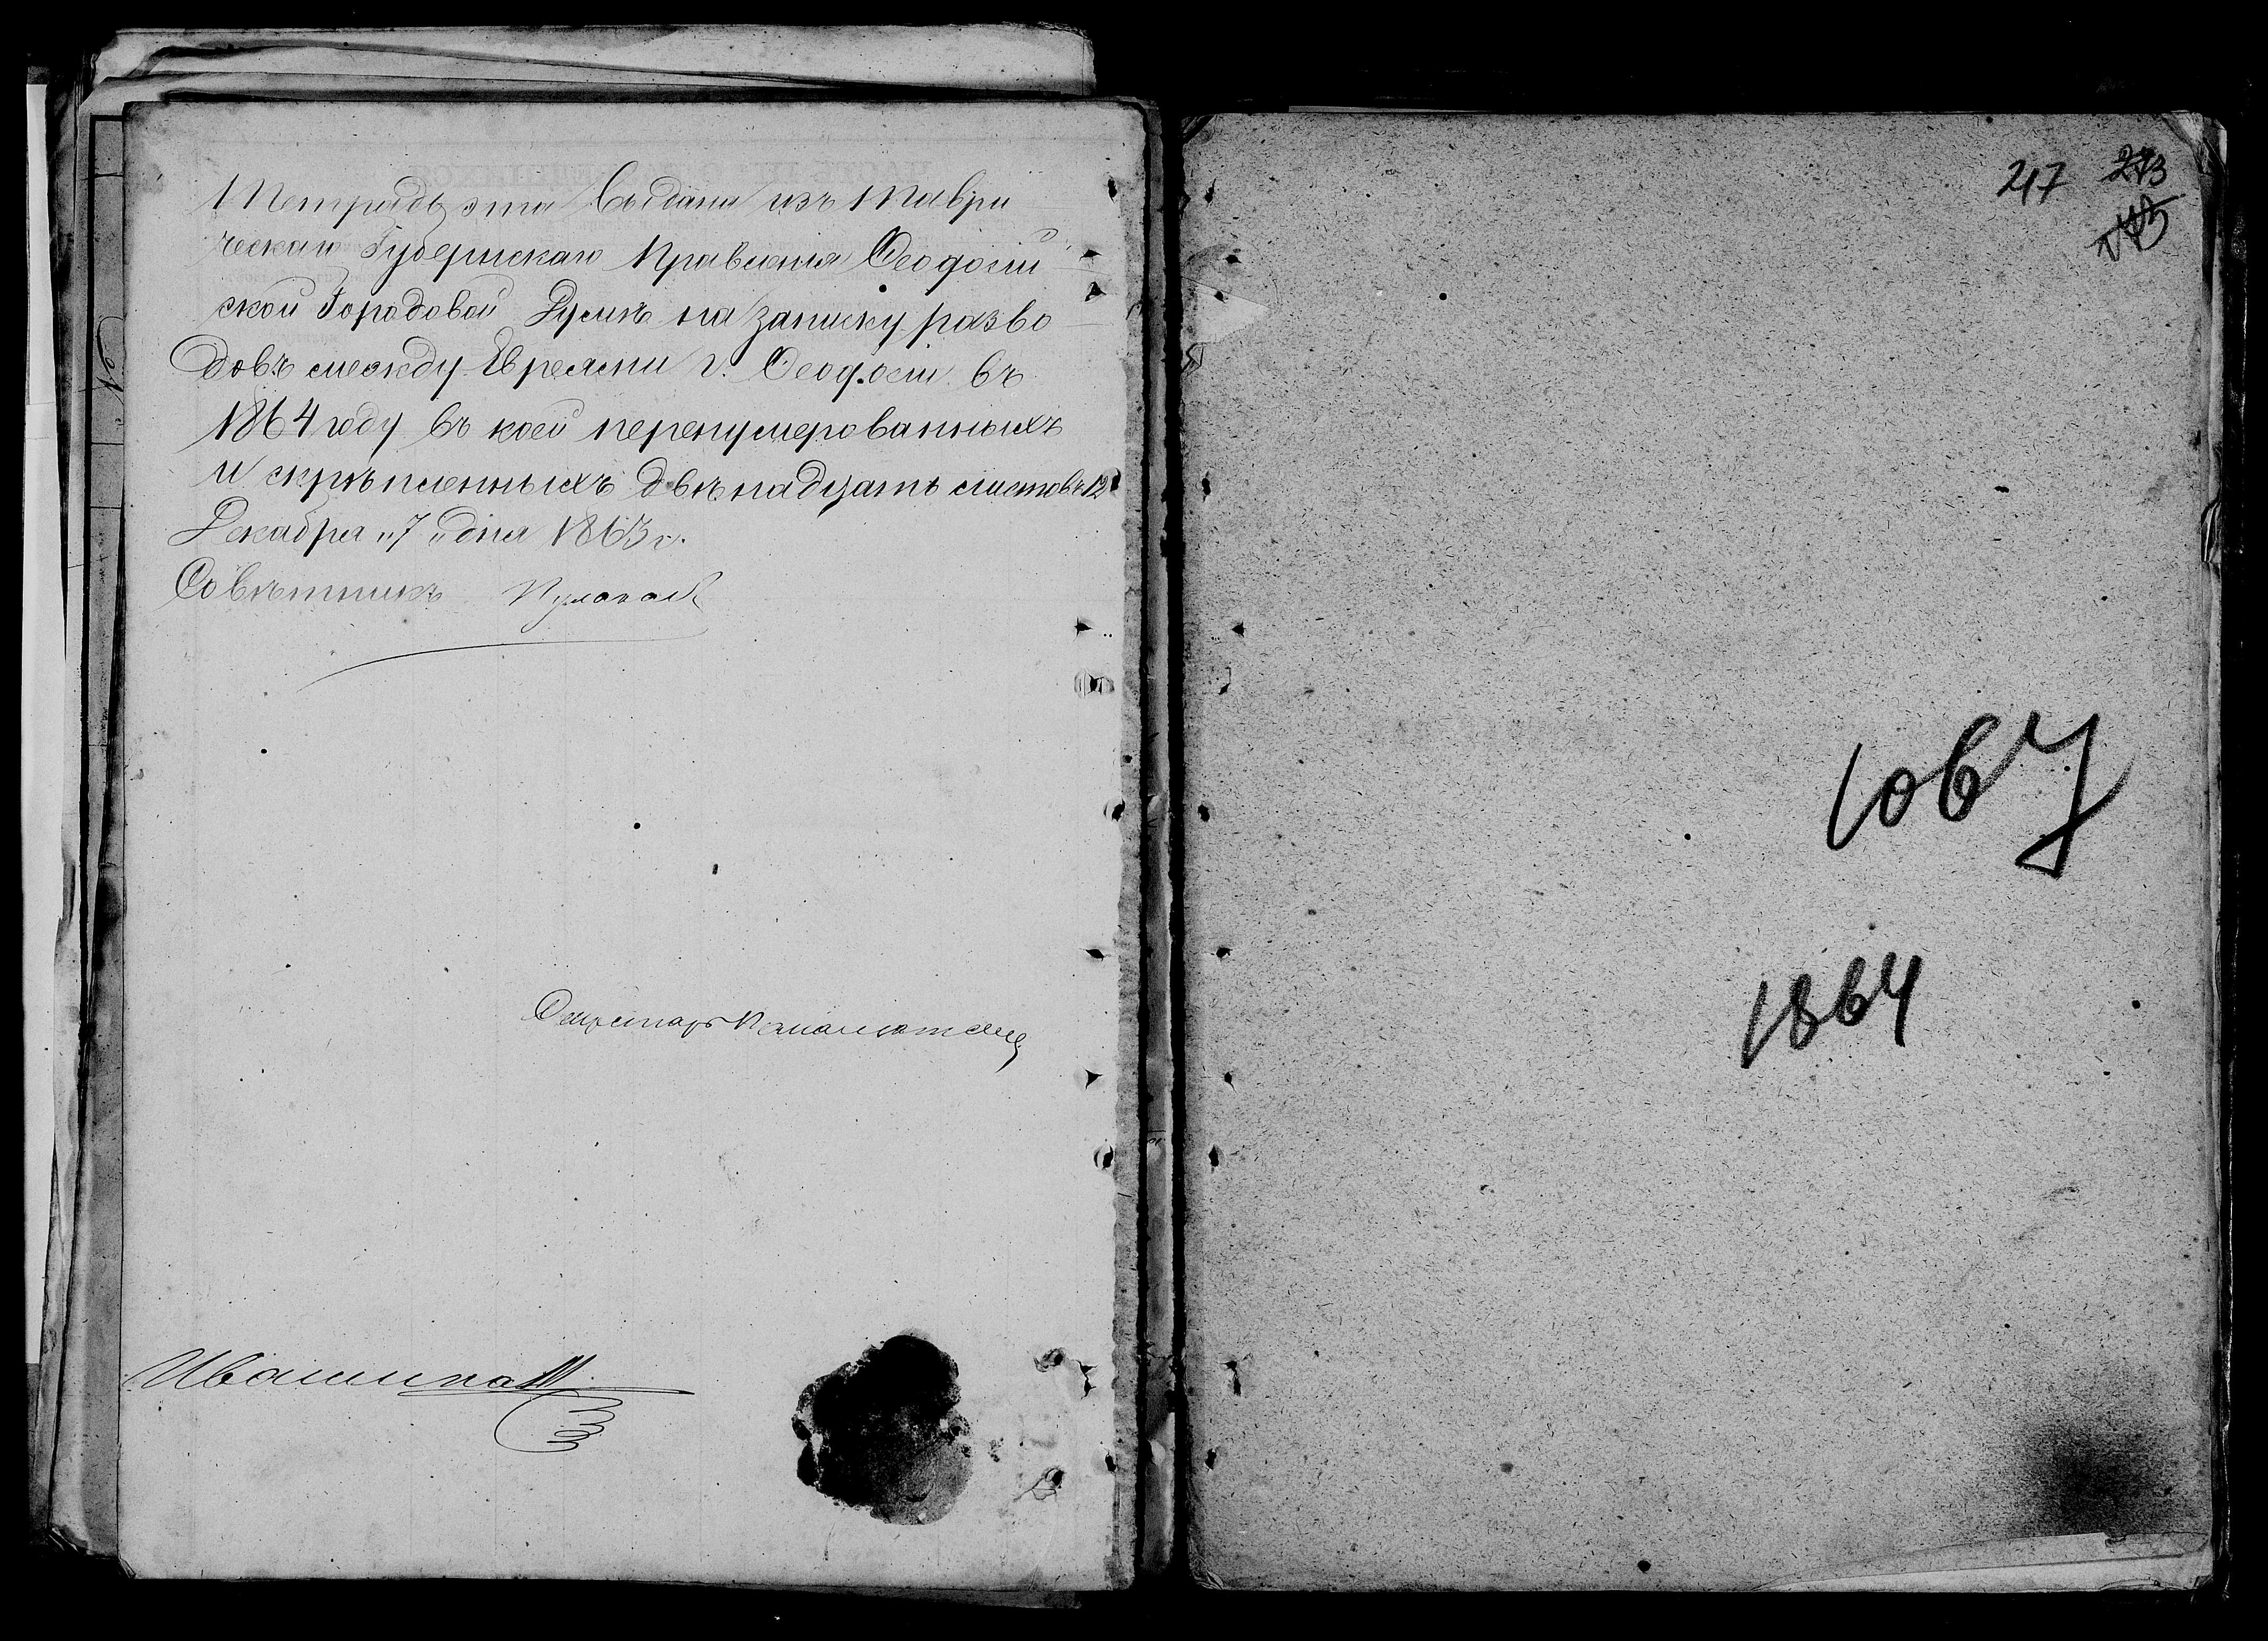 Тетрадь эта выдана изъ Таври
ческаго Губернскаго Правленія Ѳеодосій
ской Городовой Думѣ на записку разво
довъ между Евреями г. Ѳеодосіи въ
1864 году въ коей перенумерованныхъ
и скрѣпленныхъ двѣнадцать листовъ 12
Декабря „7„ дня 1863 г.
Совѣтникъ
Секретарь
217 273
1067
1864